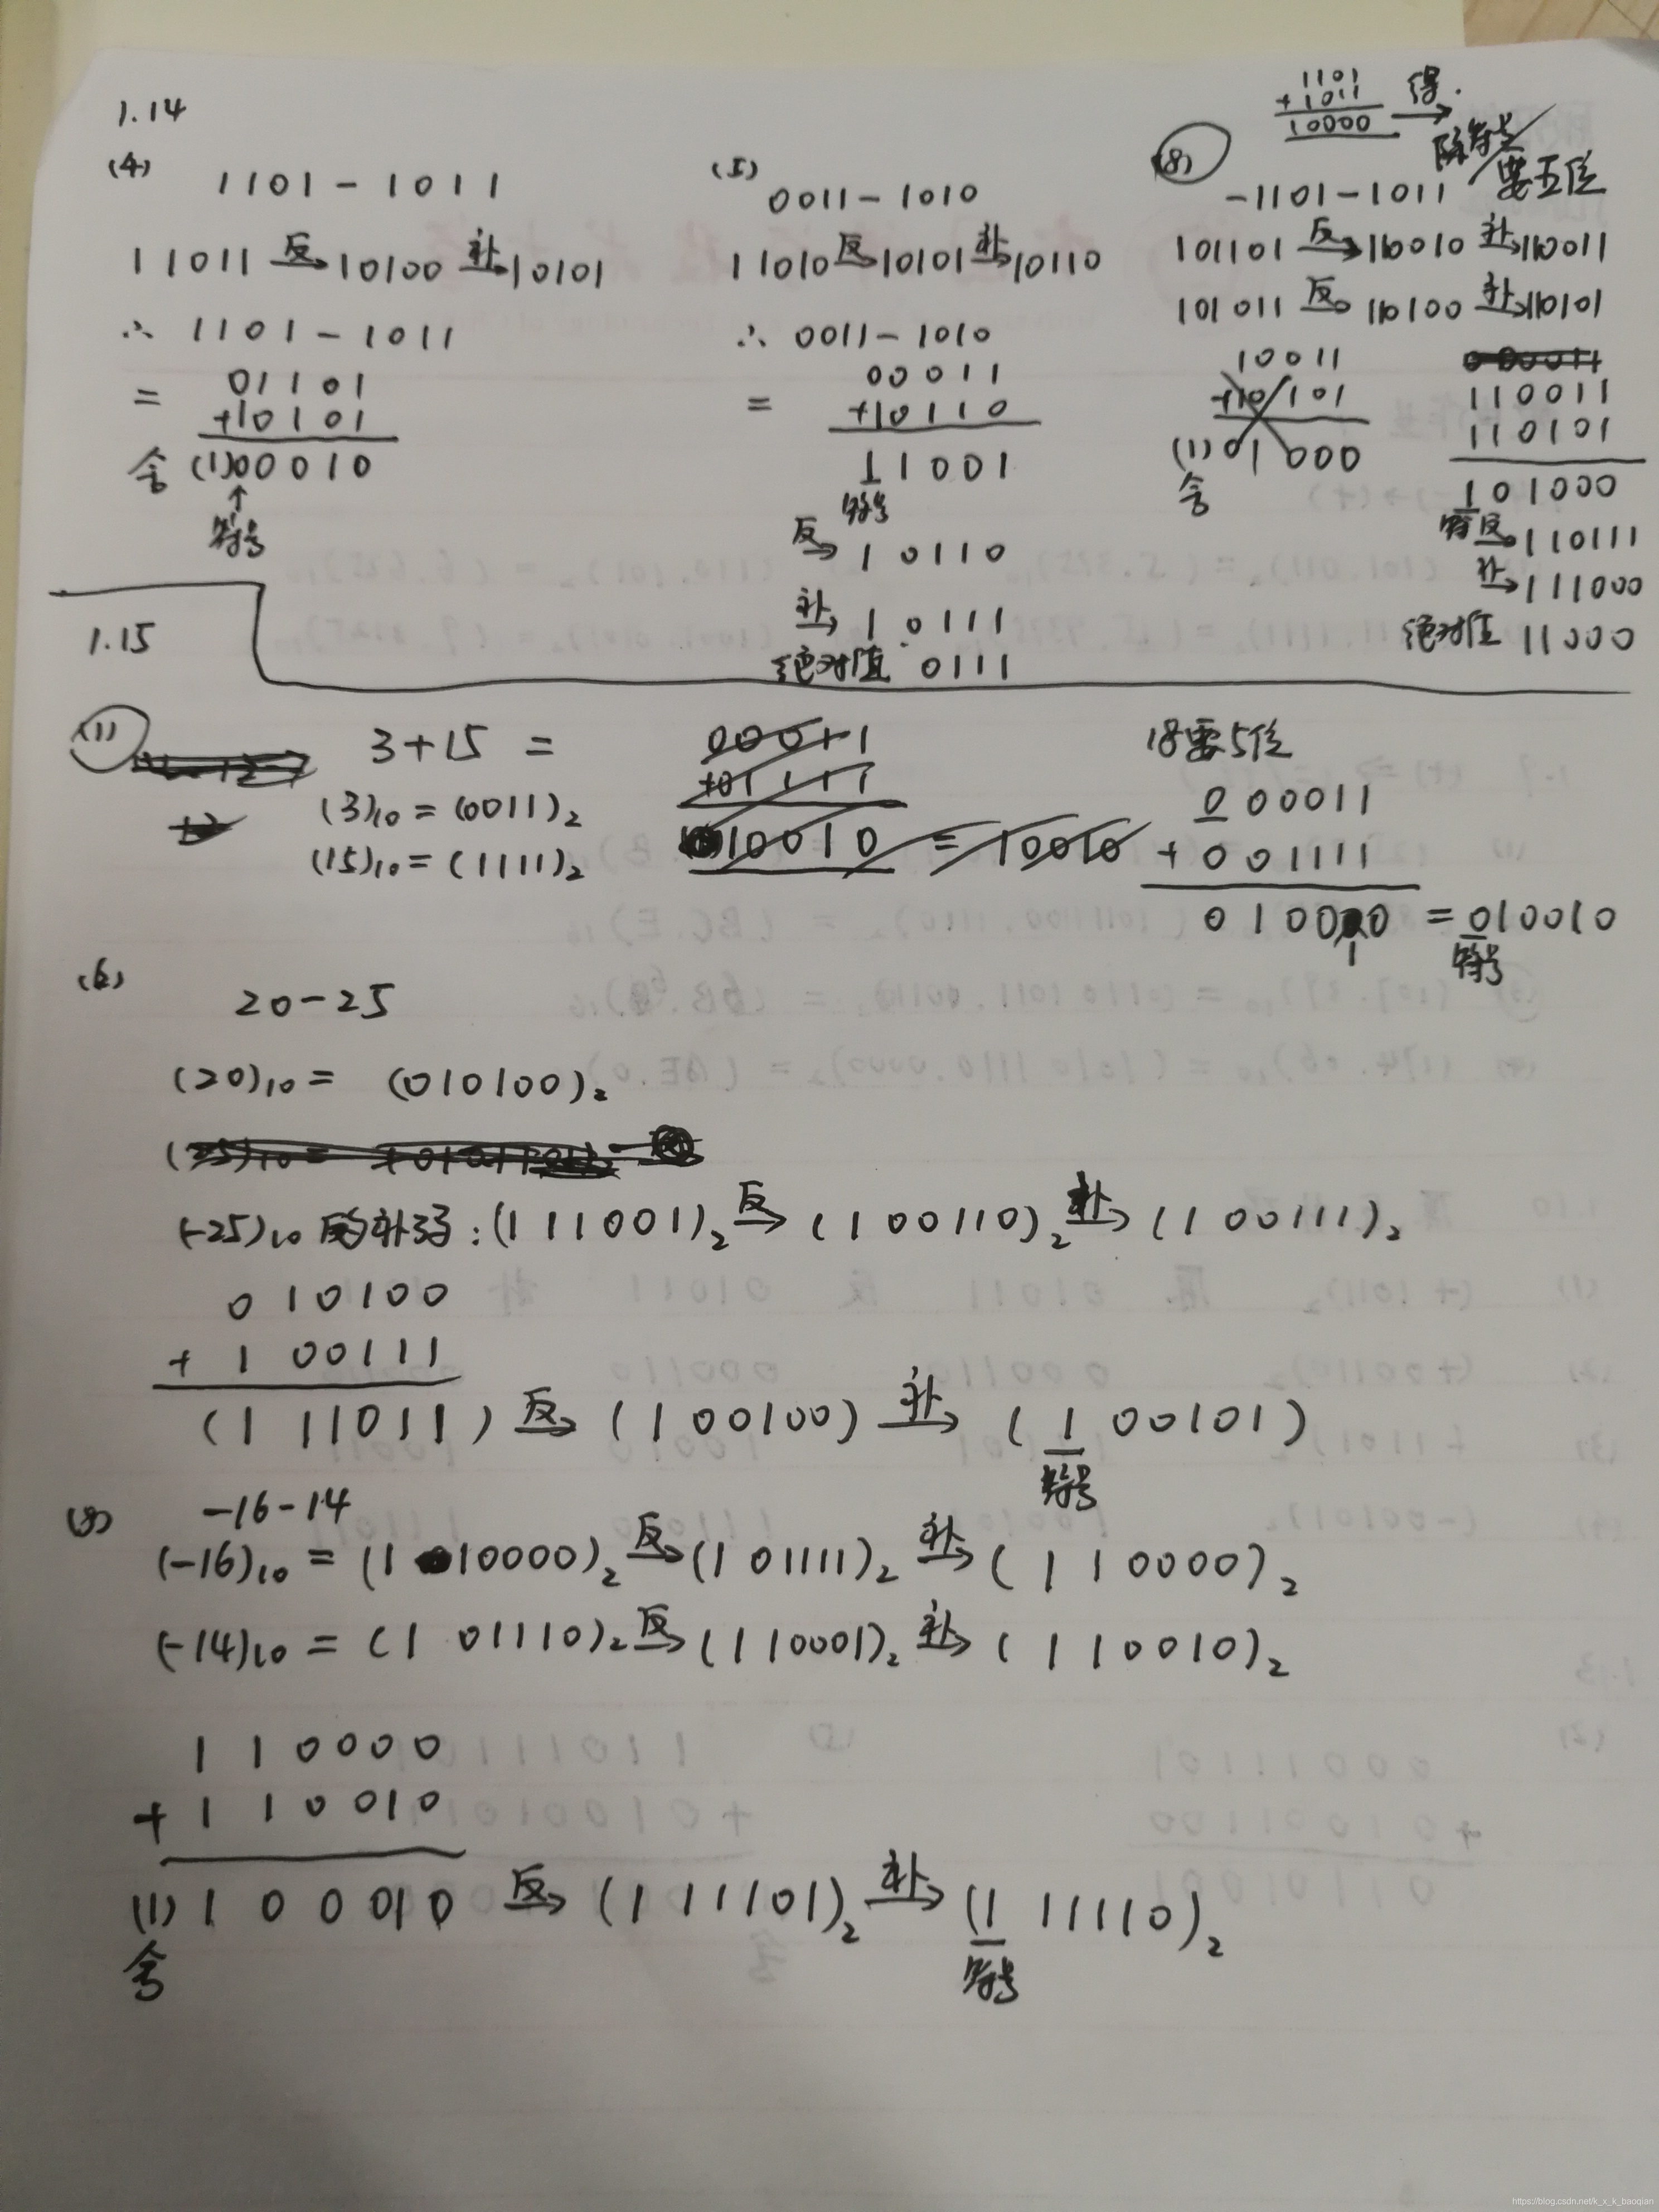 1.14
(4)
1101-1011
11011 反→ 10100 补→ 10101
∴ 1101-1011
= 01101
+10101
舍 (1)00010
↑
符号
(5)
0011-1010
11010 反→ 10101 补→ 10110
∴ 0011-1010
= 00011
+10110
11001
符号
反→ 10110
补→ 10111
绝对值 0111
(8)
1101
+1011
10000
→
要五位
-1101-1011
101101 反→ 110010 补→ 110011
101011 反→ 110100 补→ 110101
10011
+10101
(1)01000
舍
110011
110101
1101000
符 反→ 110111
补→ 111000
绝对值 11000
1.15
(1)
3+15 =
(3)10 = (0011)2
(15)10 = (1111)2
00011
+01111
10010 = 10010
18要5位
000011
+001111
010010 = 010010
符号
(6)
20-25
(20)10 = (010100)2
(-25)10 的补码: (111001)2 反→ (100110)2 补→ (100111)2
010100
+ 100111
(111011) 反→ (100100) 补→ (100101)
符号
(8)
-16-14
(-16)10 = (110000)2 反→ (101111)2 补→ (110000)2
(-14)10 = (101110)2 反→ (110001)2 补→ (110010)2
110000
+110010
(1)100010 反→ (111101)2 补→ (111110)2
舍
符号
https://blog.csdn.net/k_x_k_baoqian